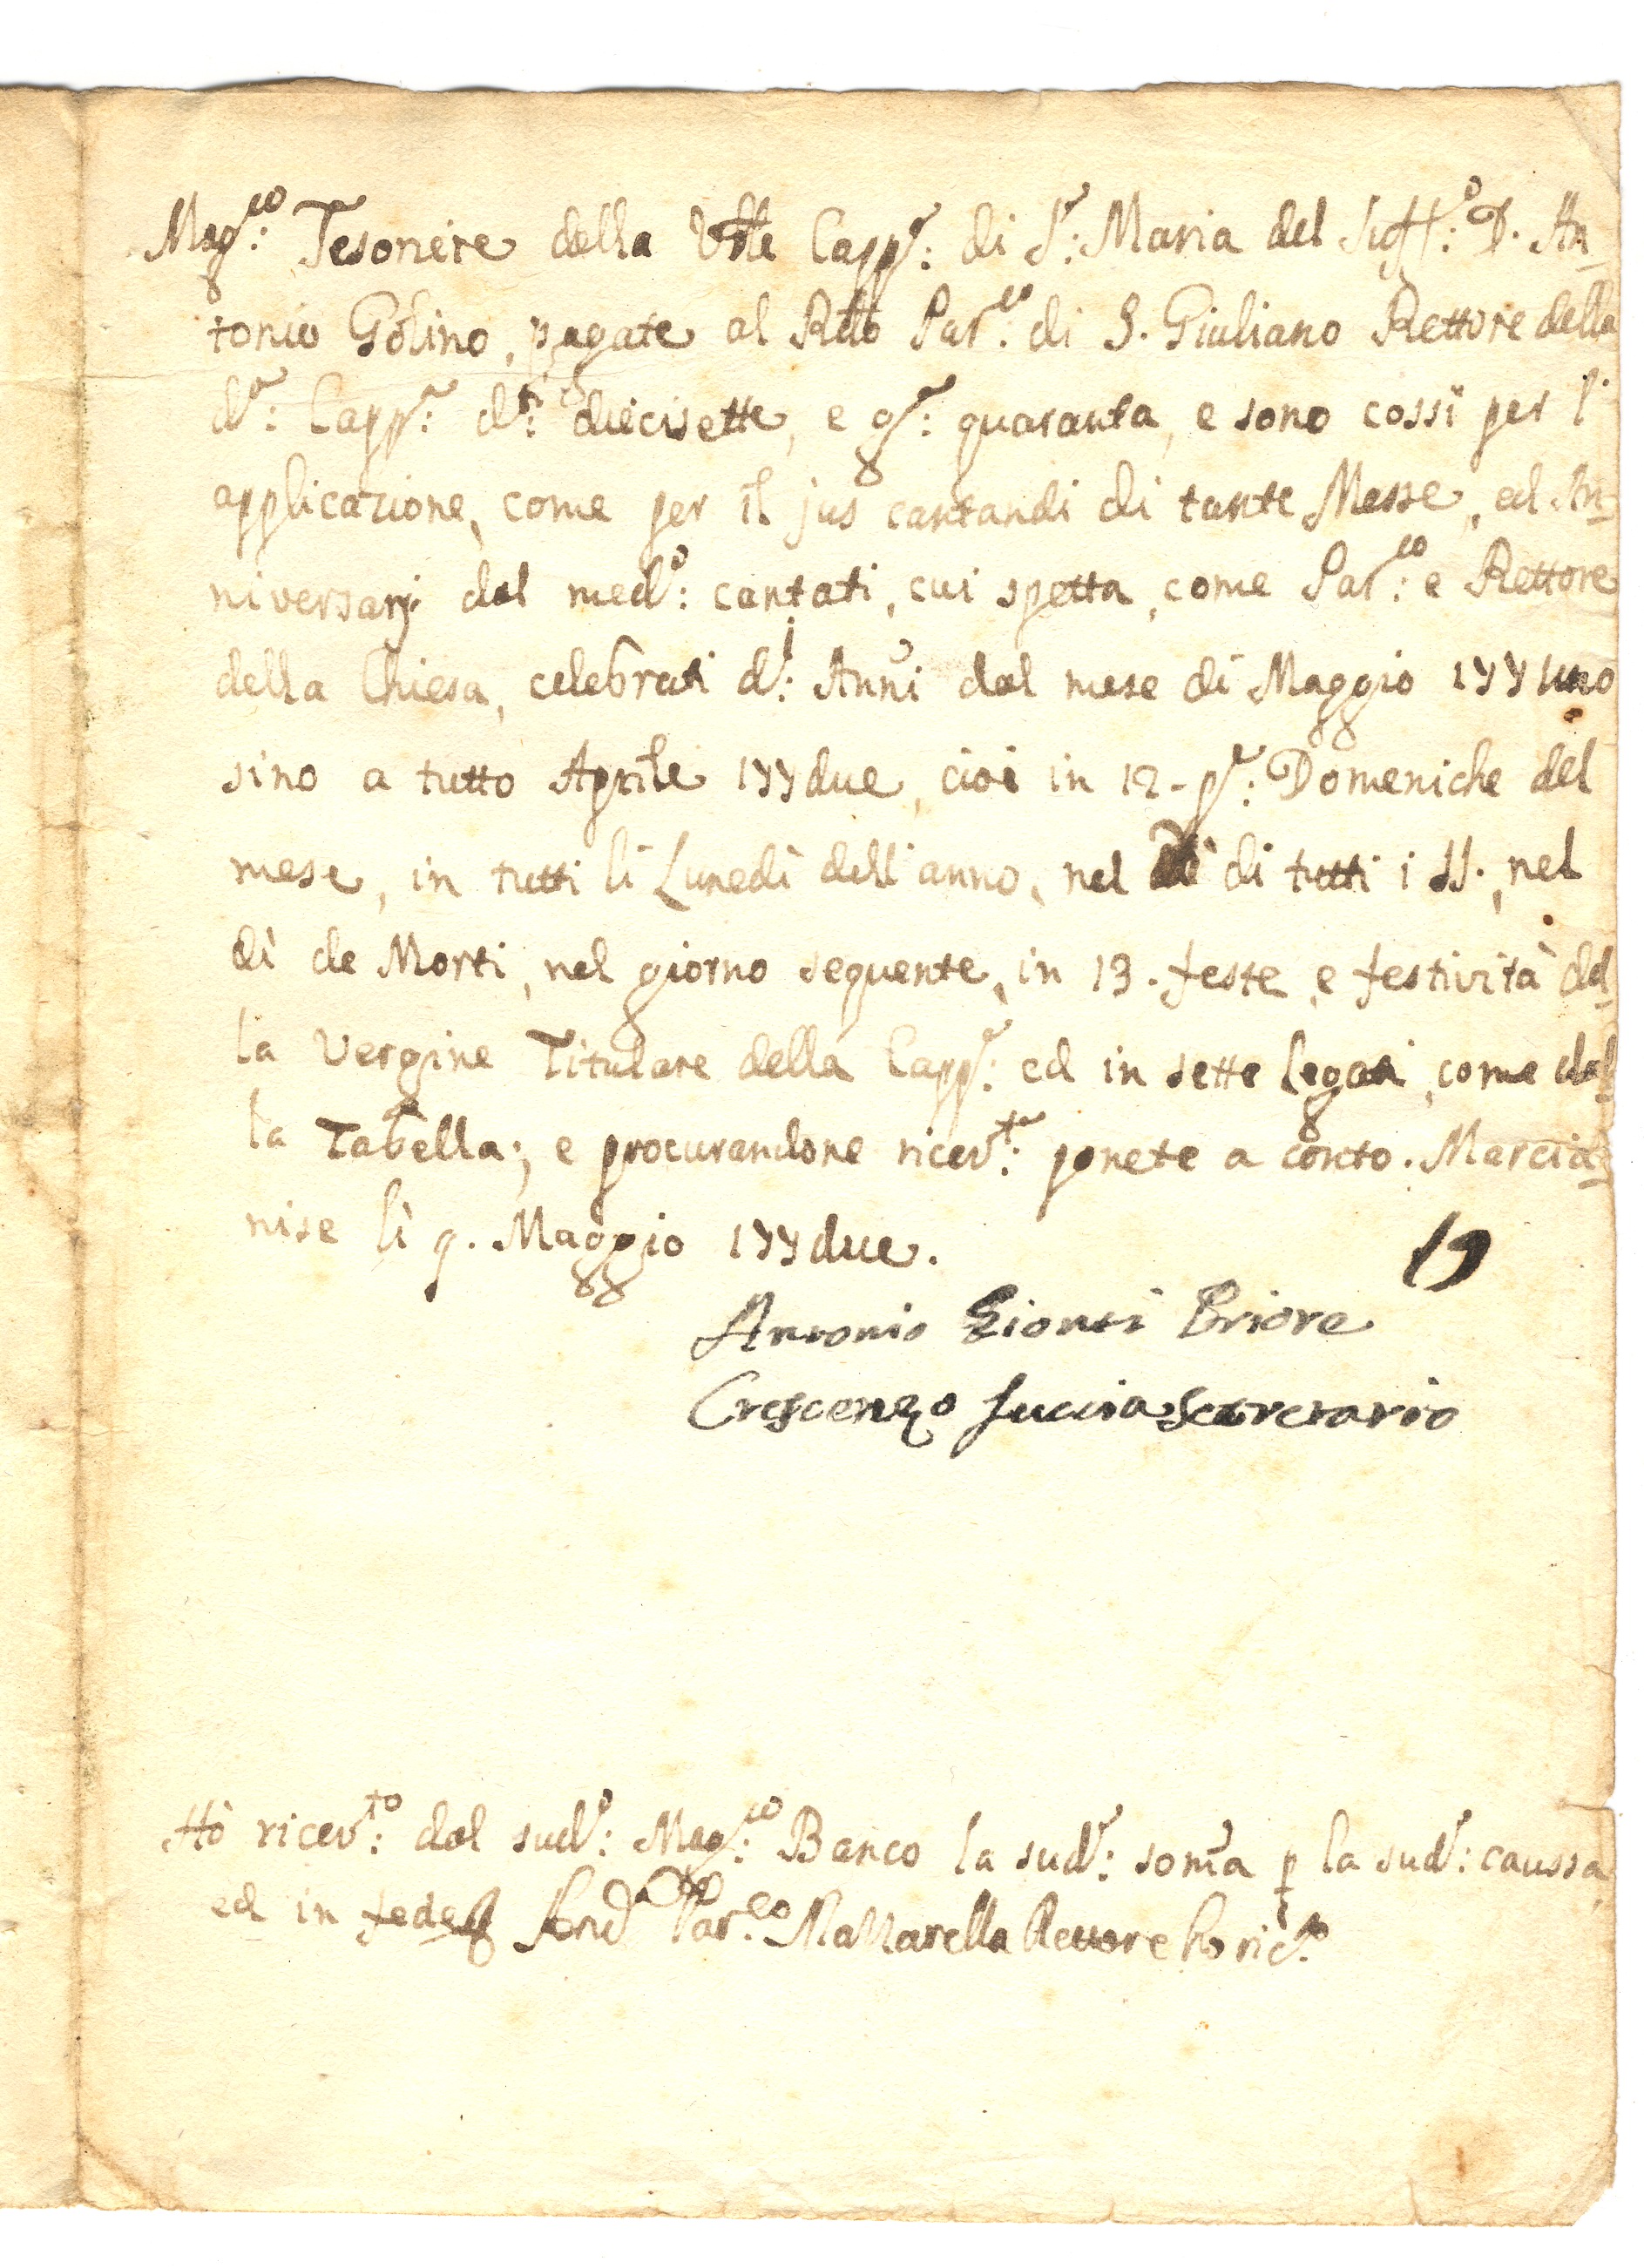 Mag.co Tesoriere della Vble Capp.a di S.a Maria del Suff.o D. An-
tonio Golino, pagate al Rdo Par.co di S. Giuliano Rettore della
d.a Capp.a d.ti diecisette, e g.a quaranta, e sono cossì per l'
applicazione, come per il jus cantandi di tante Messe, ed An-
niversarj dal med.o cantati, cui spetta, come Par.co e Rettore
della Chiesa, celebrati d.i Anni dal mese di Maggio 177uno
sino a tutto Aprile 177due, cioè in 12. p.e Domeniche del
mese, in tutti li Lunedì dell'anno, nel dì di tutti i SS., nel
dì de Morti, nel giorno seguente, in 13. feste, e festività del-
la Vergine Titulare della Capp.a ed in sette legati, come dal-
la Tabella; e procurandone ricev.ta ponete a conto. Marcia-
nise lì 9. Maggio 177due.
Antonio Zionti Priore
Crescenzo Secretario
Hò ricev.to dal sud.o Mag.co Banco la sud.a somma p la sud.a caussa,
ed in fede Par.co Mattarella Rettore ho ric.to